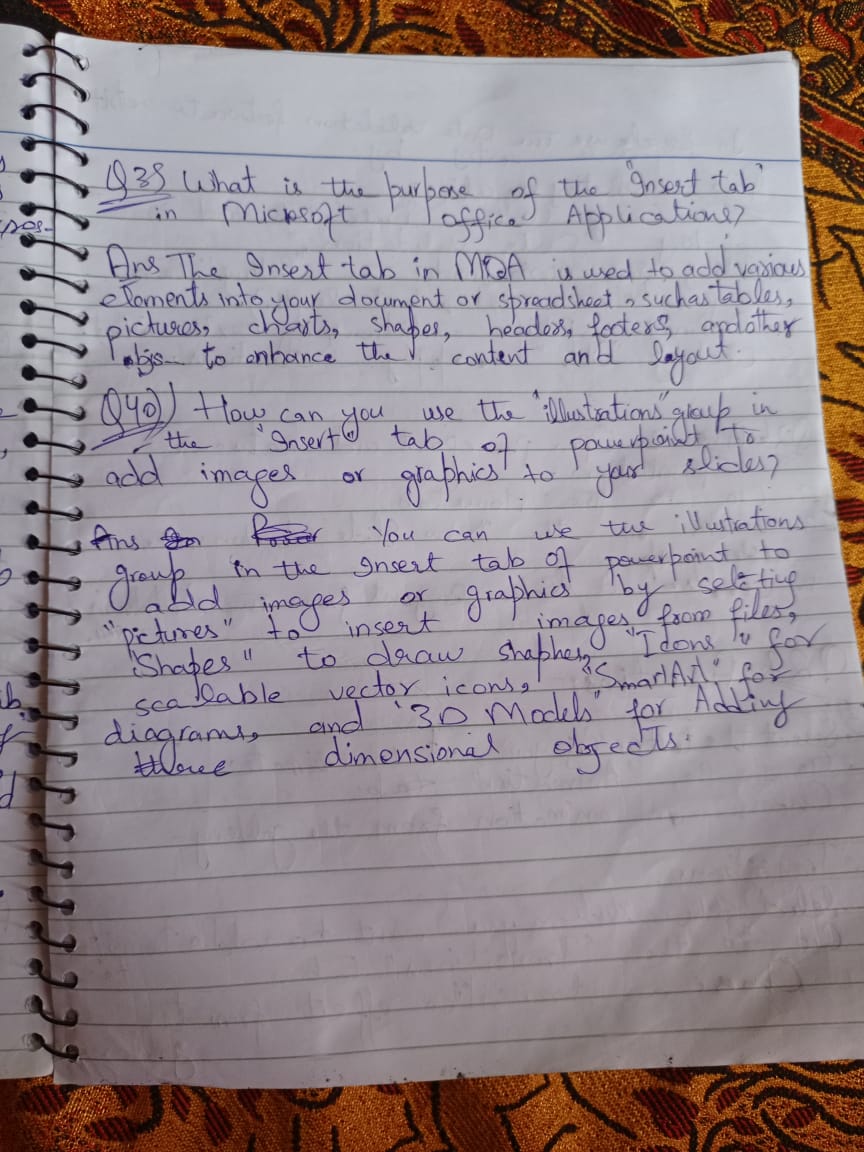 Q39 What is the purpose of the "Insert tab"
in Microsoft office Applications?
Ans The Insert tab in MOA is used to add various
elements into your document or spreadsheet, such as tables,
pictures, charts, shapes, headers, footers, and other
objs to enhance the content and layout.
Q40) How can you use the "illustrations" group in
the "Insert" tab of powerpoint to
add images or graphics to your slides?
Ans You can use the illustrations
group in the Insert tab of powerpoint to
add images or graphics by selecting
"pictures" to insert images from files,
"Shapes" to draw shaphes, "Idons" for
scalable vector icons, "SmartArt" for
diagrams, and "3D Models" for Adding
three dimensional objects.